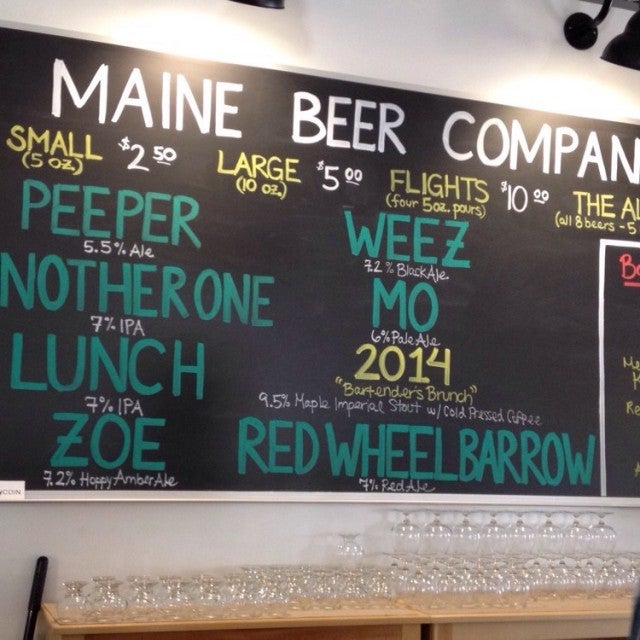 MAINE BEER COMPAN
SMALL (5 oz.) $2.50 LARGE (10 oz.) $5.00 FLIGHTS (four 5oz. pours) $10.00 THE Al (all 8 beers - 5
PEEPER
5.5% Ale
NOTHER ONE
7% IPA
LUNCH
7% IPA
ZOE
7.2% Hoppy Amber Ale
WEEZ
7.2% Black Ale.
MO
6% Pale Ale
2014
"Bartender's Brunch"
9.5% Maple Imperial Stout w/ Cold Pressed Coffee
RED WHEELBARROW
7% Red Ale
COIN